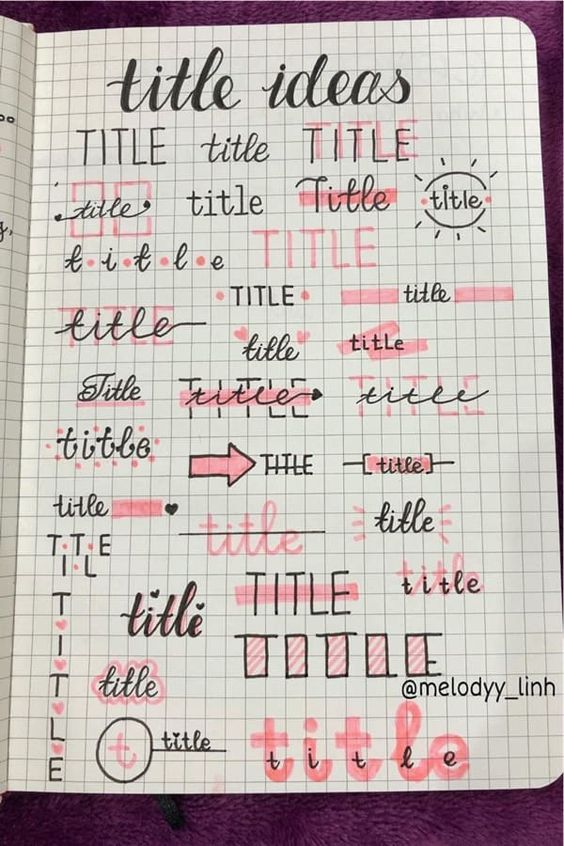 title ideas
TITLE title TITLE
title title Title title
t i t l e TITLE
TITLE title
title
title title
Title title title
title
TITLE [title]
title title
title
T T E
I L
TITLE title
title
TITLE
TITLE
title
@melodyy_linh
t title
title
t i t l e